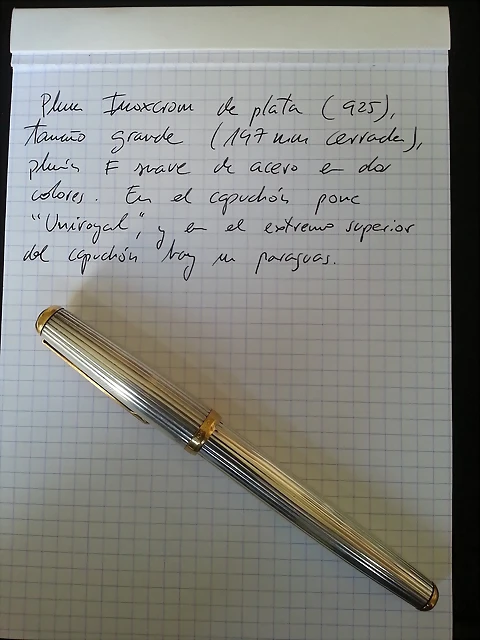 Pluma Inoxcrom de plata (925),
tamaño grande (147 mm cerrada),
plumín F suave de acero en dos
colores. En el capuchón pone
"Uniroyal", y en el extremo superior
del capuchón hay un paraguas.